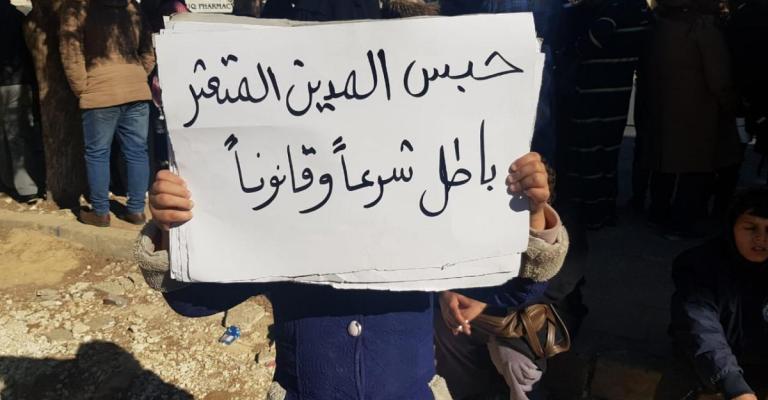 UQ PHARMACY
حبس المدين المتعثر
باطل شرعاً وقانوناً